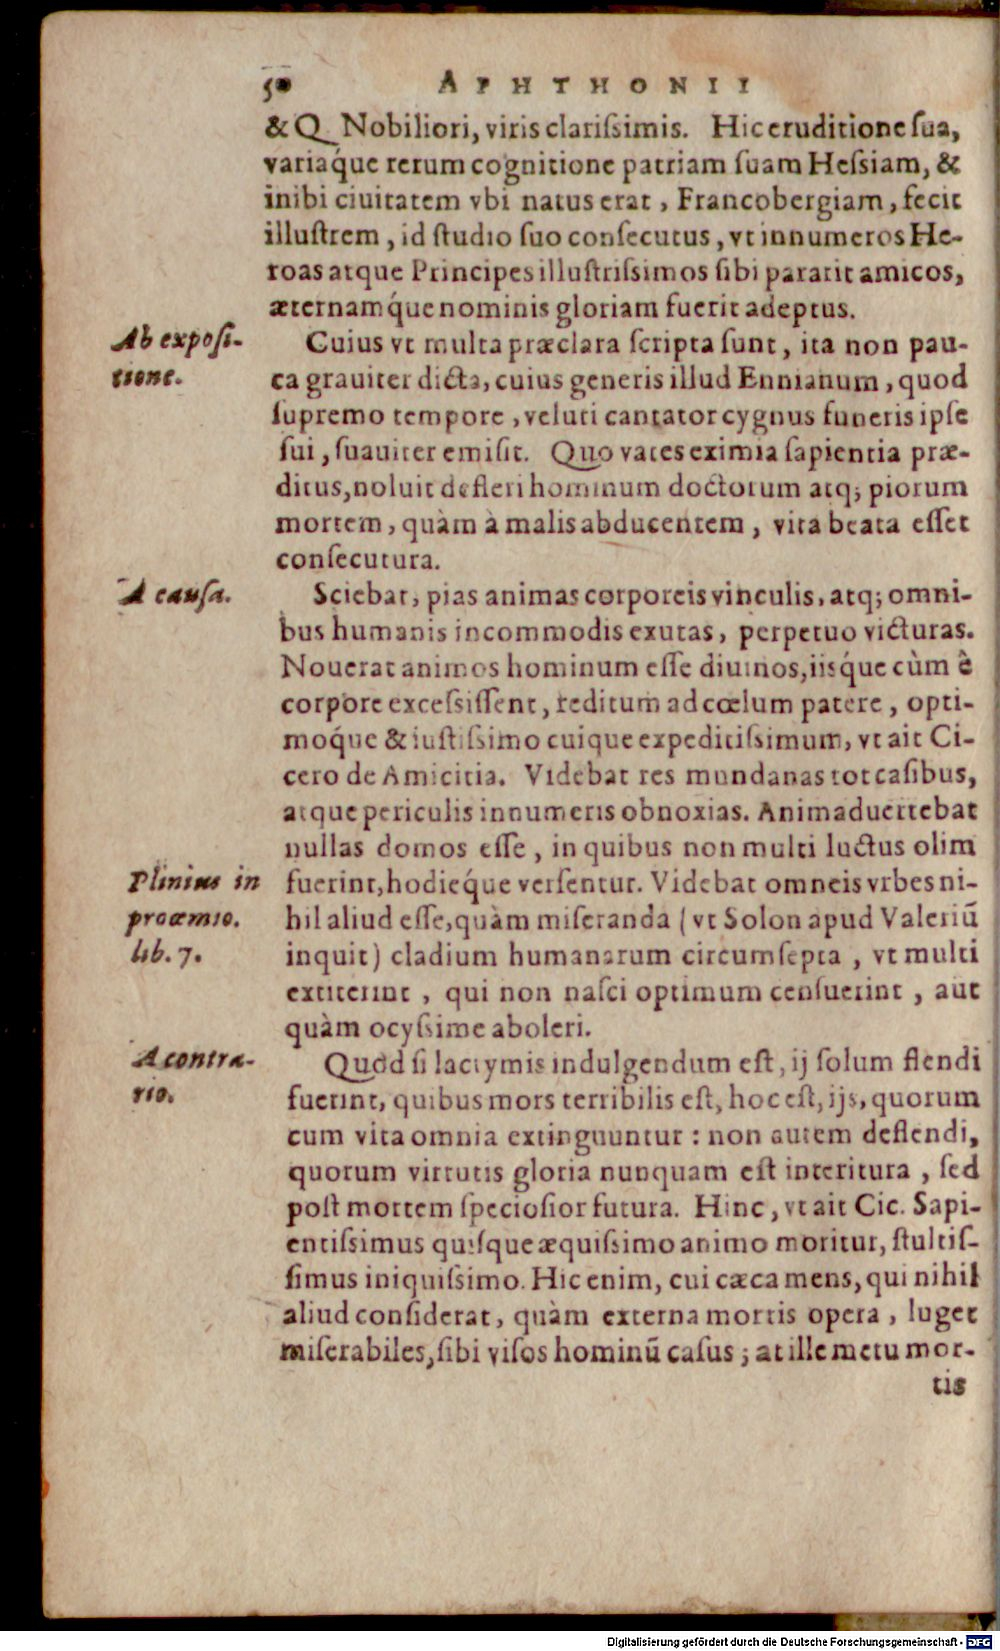 50 APHTHONII
& Q. Nobiliori, viris clariſsimis. Hic eruditione ſua,
variaq́ue rerum cognitione patriam ſuam Heſsiam, &
inibi ciuitatem vbi natus erat, Francobergiam, fecit
illuſtrem, id ſtudio ſuo conſecutus, vt innumeros He-
roas atque Principes illuſtriſsimos ſibi pararit amicos,
æternamq́ue nominis gloriam fuerit adeptus.
Ab expoſi-
tione.
Cuius vt multa præclara ſcripta ſunt, ita non pau-
ca grauiter dicta, cuius generis illud Ennianum, quod
ſupremo tempore, veluti cantator cygnus funeris ipſe
ſui, ſuauiter emiſit. Quo vates eximia ſapientia præ-
ditus, noluit defleri hominum doctorum atq; piorum
mortem, quàm à malis abducentem, vita beata eſſet
conſecutura.
A cauſa.
Sciebat, pias animas corporeis vinculis, atq; omni-
bus humanis incommodis exutas, perpetuo victuras.
Nouerat animos hominum eſſe diuinos, iisq́ue cùm è
corpore exceſsiſſent, reditum ad cœlum patere, opti-
moq́ue & iuſtiſsimo cuique expeditiſsimum, vt ait Ci-
cero de Amicitia. Videbat res mundanas tot caſibus,
atque periculis innumeris obnoxias. Animaduertebat
nullas domos eſſe, in quibus non multi luctus olim
Plinius in
proœmio.
lib. 7.
fuerint, hodieq́ue verſentur. Videbat omneis vrbes ni-
hil aliud eſſe, quàm miſeranda (vt Solon apud Valeriū
inquit) cladium humanarum circumſepta, vt multi
extiterint, qui non naſci optimum cenſuerint, aut
quàm ocyſsime aboleri.
A contra-
rio.
Quòd ſi lacrymis indulgendum eſt, ij ſolum flendi
fuerint, quibus mors terribilis eſt, hoc eſt, ijs, quorum
cum vita omnia extinguuntur : non autem deflendi,
quorum virtutis gloria nunquam eſt interitura, ſed
poſt mortem ſpecioſior futura. Hinc, vt ait Cic. Sapi-
entiſsimus quiſque æquiſsimo animo moritur, ſtultiſ-
ſimus iniquiſsimo. Hic enim, cui cæca mens, qui nihil
aliud conſiderat, quàm externa mortis opera, luget
miſerabiles, ſibi viſos hominū caſus; at ille metu mor-
tis
Digitalisierung gefördert durch die Deutsche Forschungsgemeinschaft - DFG